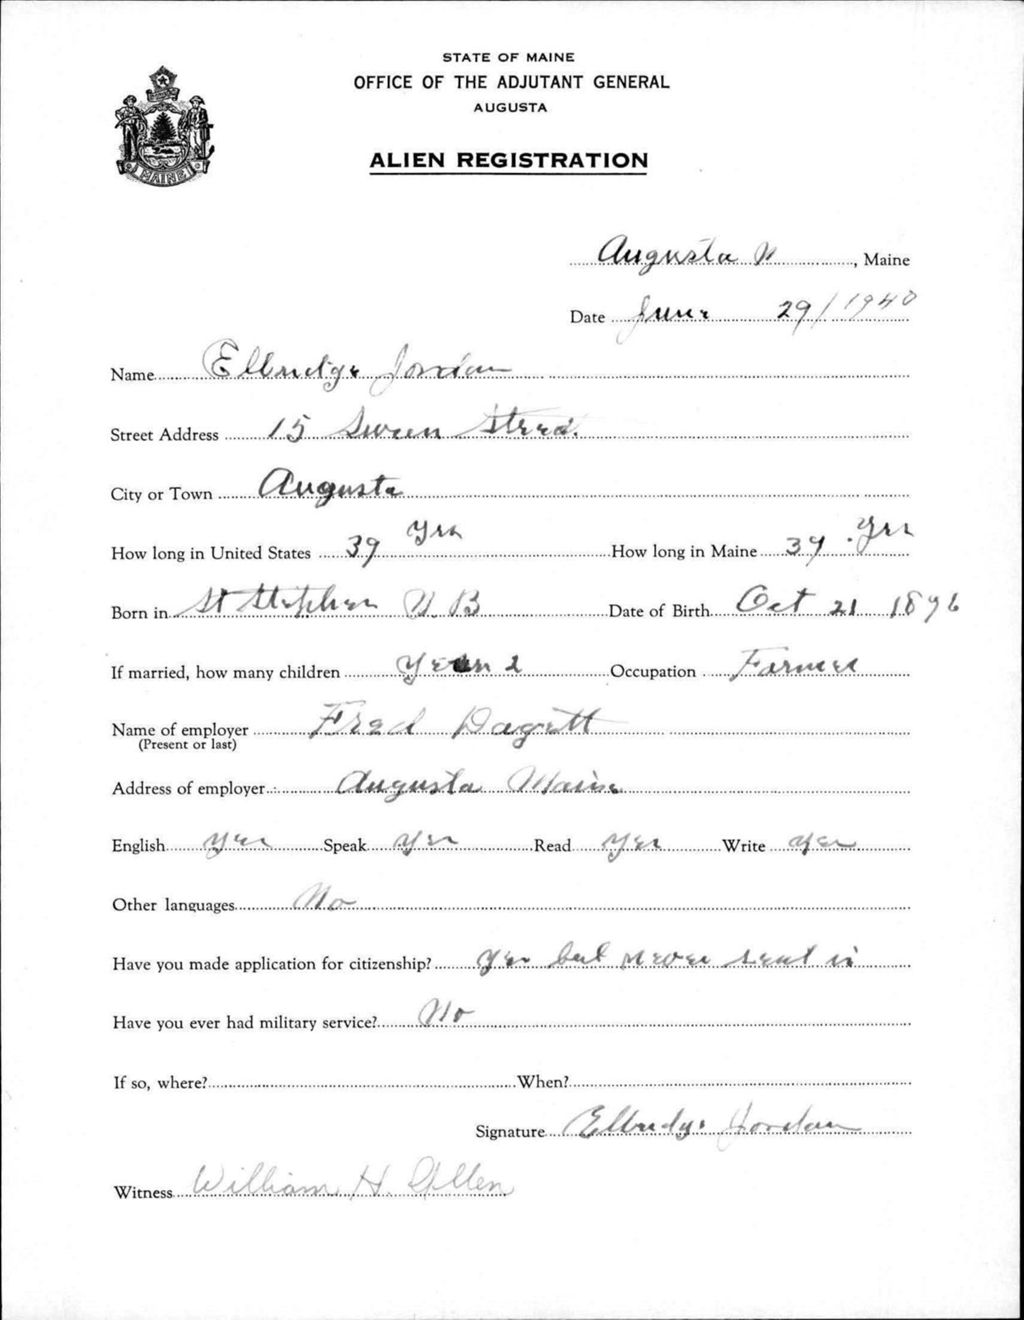 STATE OF MAINE
OFFICE OF THE ADJUTANT GENERAL
AUGUSTA
ALIEN REGISTRATION
MAINE
Augusta, Maine
Date June 29/1940
Name Elbridge Jordan
Street Address 15 Street.
City or Town Augusta
How long in United States 39 Yrs How long in Maine 39 . Yrs
Born in St Stephen N. B Date of Birth Oct 21 1896
If married, how many children 2 Occupation Farmer
Name of employer Fred Dagett
(Present or last)
Address of employer Augusta Maine
English Yes Speak Yes Read Yes Write Yes
Other languages No
Have you made application for citizenship? Yes but never sent in
Have you ever had military service? No
If so, where? When?
Signature Elbridge Jordan
Witness William H. Allen